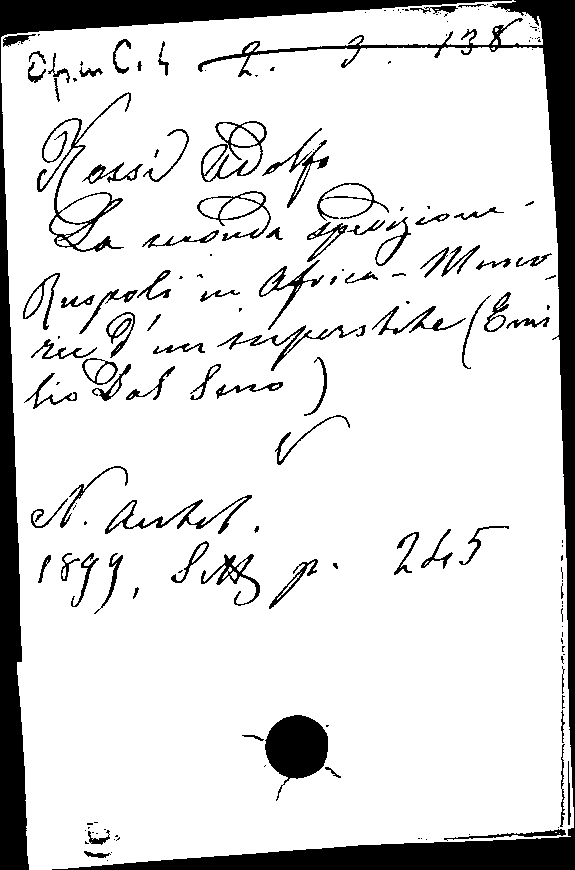 Op. in C. 4 2. 3. 138
Rossi Adolfo
La seconda spedizione
Ruspoli in Africa - Memo-
rie d'un superstite (Emi-
lio Dal Seno)
N. Antol.
1899, Sett p. 245